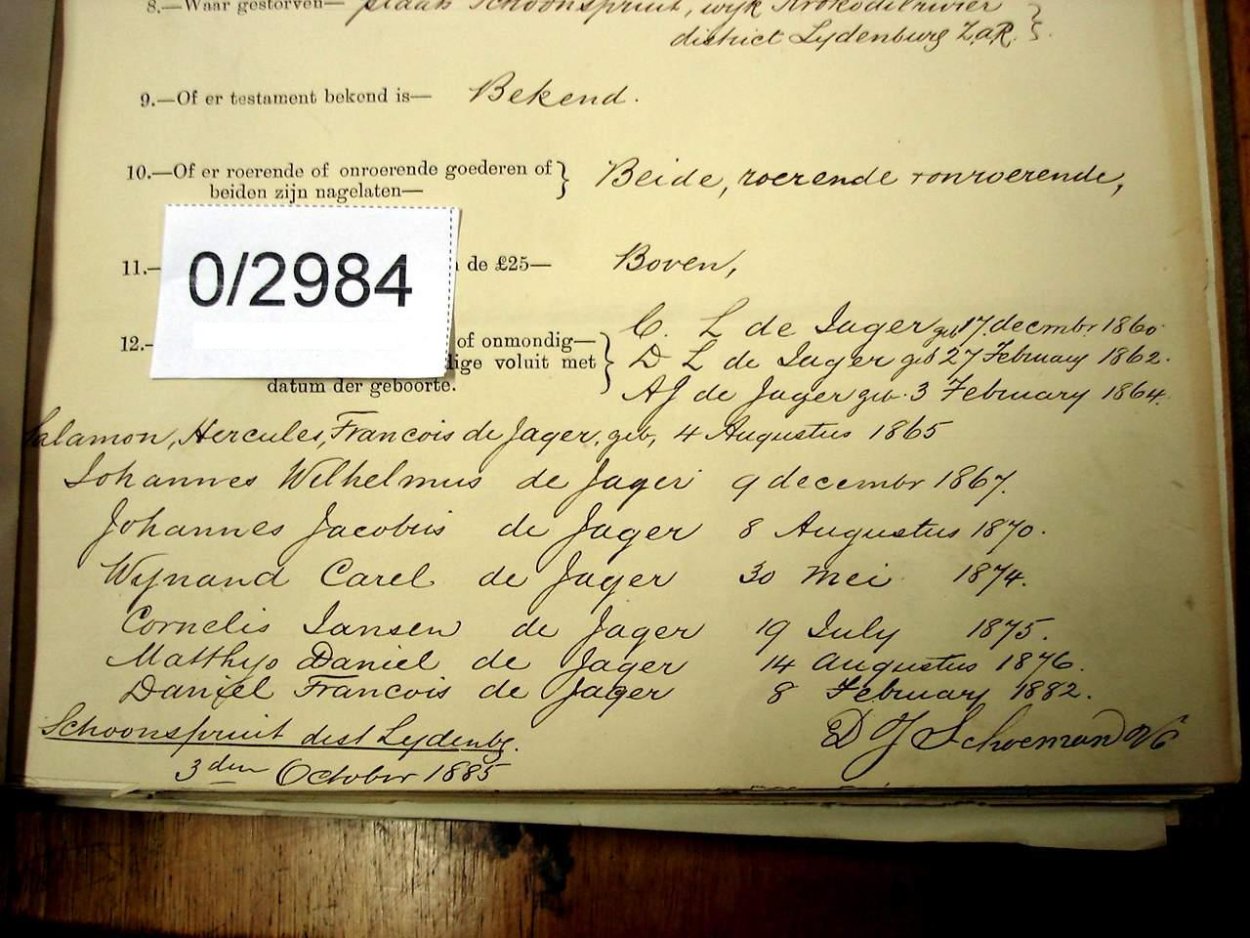 8.—Waar gestorven— plaats Schoonspruit, wijk Krokodilrivier
district Lydenburg Z.a.R.
9.—Of er testament bekend is— Bekend.
10.—Of er roerende of onroerende goederen of beiden zijn nagelaten— Beide, roerende + onroerende,
0/2984
11.— de £25— Boven,
12.— of onmondig— C. L de Jager geb 17 decmbr 1860
dige voluit met D L de Jager geb 27 February 1862.
datum der geboorte. AJ de Jager geb. 3 February 1864.
Salamon, Hercules, Francois de Jager, geb, 4 Augustus 1865
Johannes Wilhelmus de Jager 9 decembr 1867.
Johannes Jacobus de Jager 8 Augustus 1870.
Wynand Carel de Jager 30 Mei 1874.
Cornelis Jansen de Jager 19 July 1875.
Matthys Daniel de Jager 14 Augustus 1876.
Daniel Francois de Jager 8 February 1882.
Schoonspruit dist Lydenbg. D J Schoeman
3den October 1885